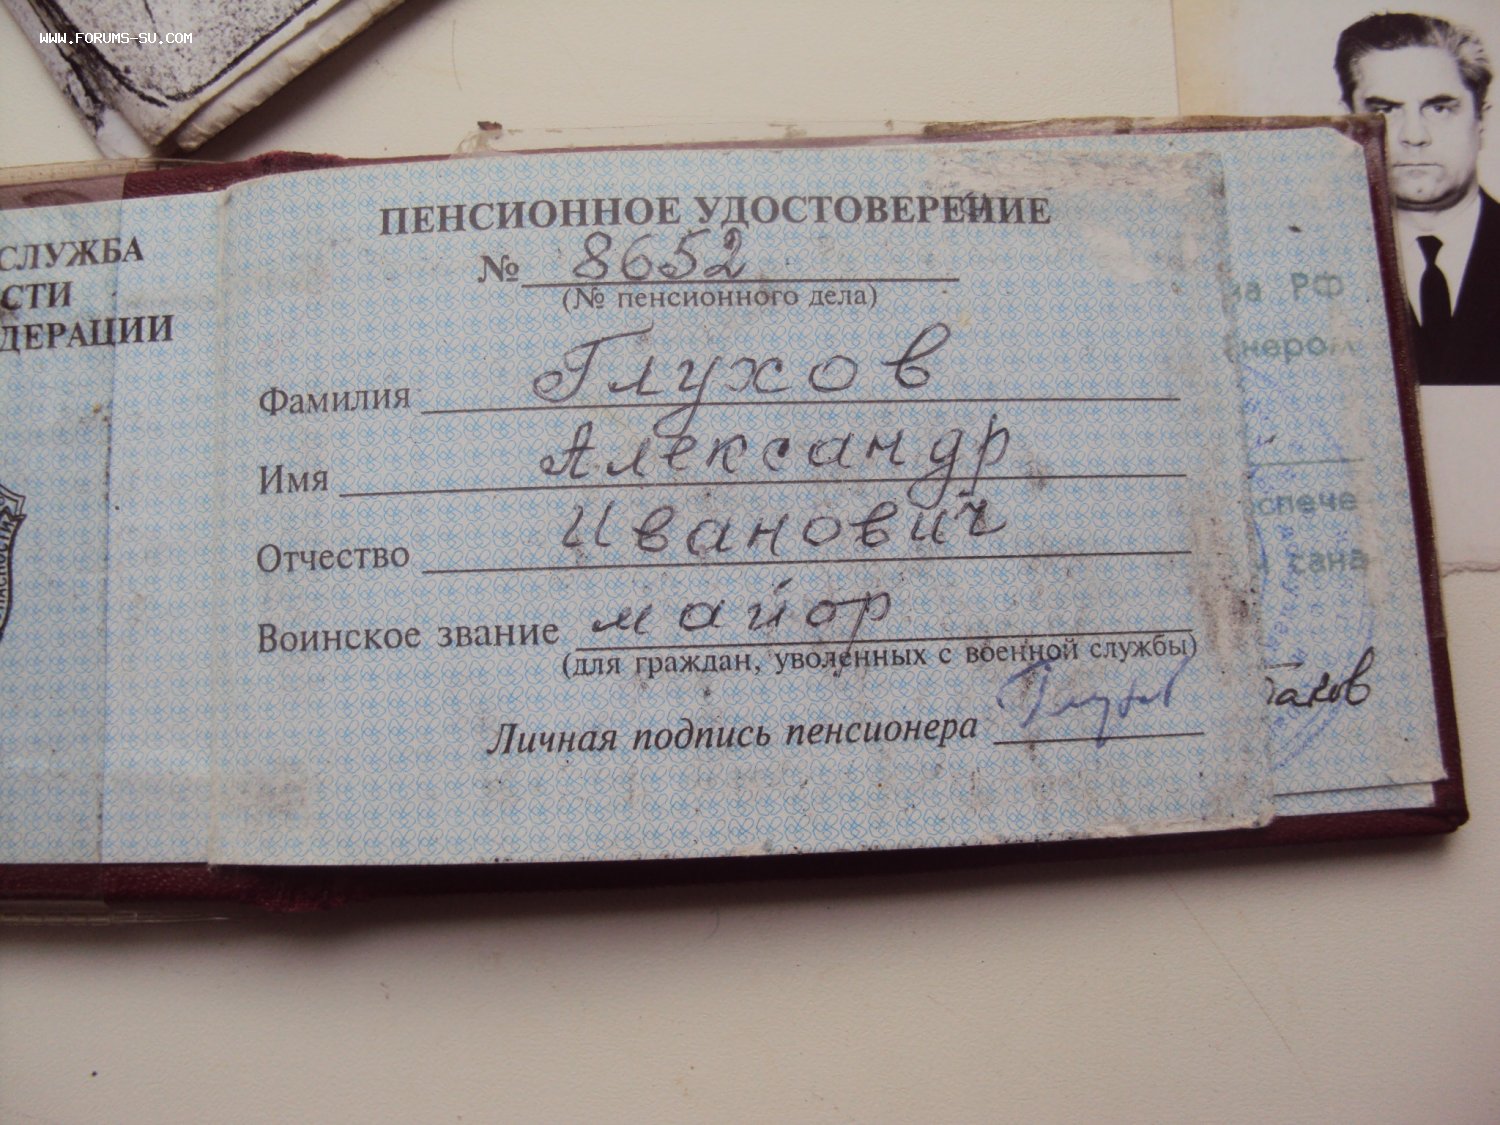 WWW.FORUMS-SU.COM
СЛУЖБА
СТИ
ДЕРАЦИИ
ПЕНСИОННОЕ УДОСТОВЕРЕНИЕ
№ 8652
(№ пенсионного дела)
Фамилия Глухов
Имя Александр
Отчество Иванович
Воинское звание майор
(для граждан, уволенных с военной службы)
Личная подпись пенсионера
на РФ
нером
спече
сана